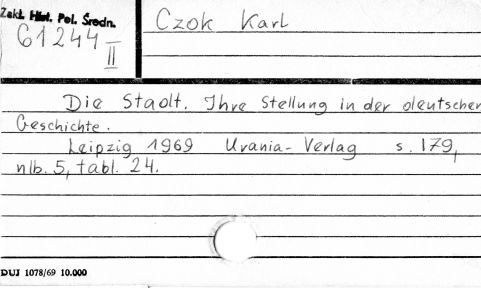 Zakł. Hist. Pol. Średn.
G1244
II
Czok Karl
Die Stadt. Ihre Stellung in der deutschen
Geschichte.
Leipzig 1969 Urania-Verlag s. 179,
nlb. 5, tabl. 24.
DUJ 1078/69 10.000